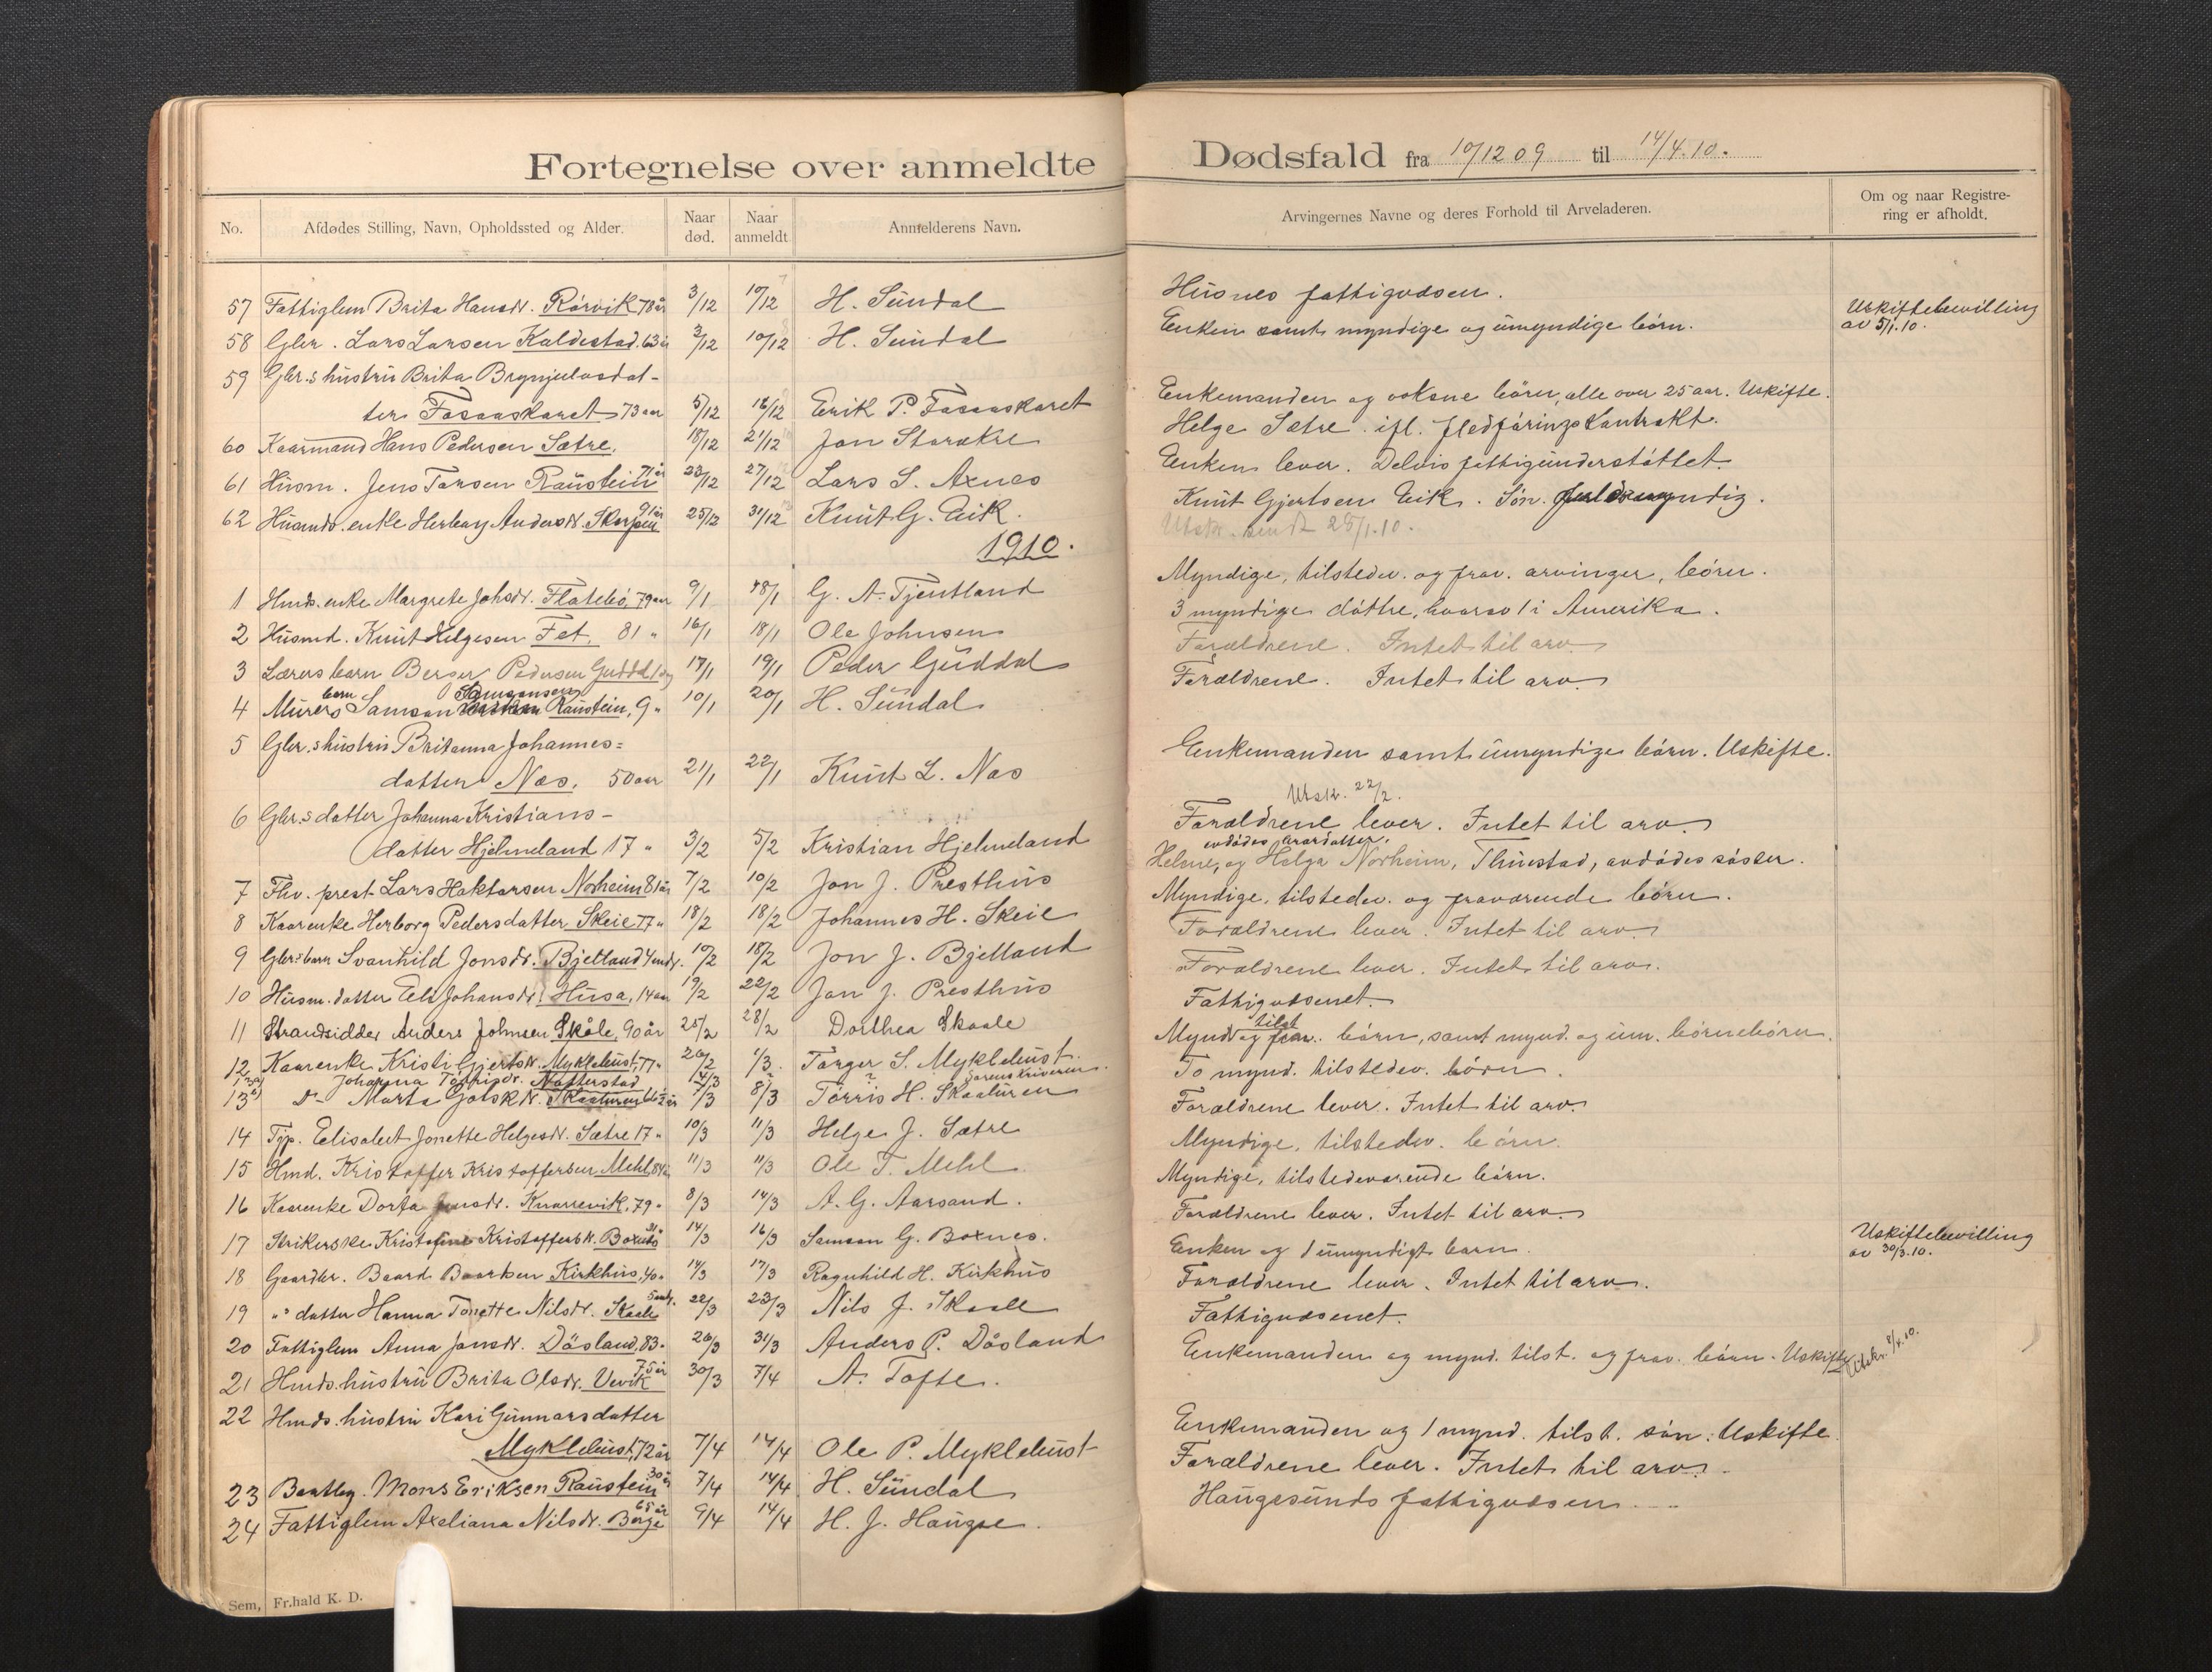 Fortegnelse over anmeldte Dødsfald fra 10/12 09 til 14/4.10.
No. Afdødes Stilling, Navn, Opholdssted og Alder. Naar død. Naar anmeldt Anmelderens Navn. Arvingernes Navne og deres Forhold til Arveladeren. Om og naar Registrering er afholdt.
57 Fattiglem Brita Hansdr. Rørvik 78 år 3/12 10/12 H. Sundal Husnes fattigvæsen.
58 Gbr. Lars Larsen Kaldestad. 63 år 3/12 10/12 H. Sundal Enken samt myndige og umyndige børn. Uskiftebevilling av 5/1.10.
59 Gbr.s hustru Brita Brynjulvsdat-
ter Fosaaskaret 73 aar 5/12 18/12 Erik P. Fosaaskaret Enkemanden og voksne børn, alle over 25 aar. Uskifte.
60 Kaarmand Hans Pedersen Sætre. 18/12 21/12 Jon Storækre Helge Sætre ifl. fledføringskontrakt.
61 Husm. Jens Tarsen Raustein 71 år 23/12 27/12 Lars S. Axnes Enken lever. Delvis fattigunderstøttet.
62 Husmds. enke Herborg Andersdr. Skarpen 91 år 25/12 31/12 Knut G. Eik. Knut Gjertsen Eik. Søn. fuldmyndig.
Utskr. sendt 25/1.10.
1910.
1 Hmds. enke Margrete Johsdr. Flatebø, 79 aar 9/1 18/1 G. A. Tjentland Myndige, tilstedev. og frav. arvinger, børn.
2 Husmd. Knut Helgesen Fet. 81 " 16/1 18/1 Ole Johnsen 3 myndige døttre, hvorav 1 i Amerika.
3 Lærers barn Berger Pedersen Guddal 1 dg 17/1 19/1 Peder Guddal Forældrene. Intet til arv.
4 Murers barn Samson Samsonsen Raustein, 9 " 10/1 20/1 H. Sundal Forældrene. Intet til arv.
5 Gbr.s hustru Britanna Johannes=
datter Næs. 50 aar 21/1 22/1 Knut L. Næs Enkemanden samt umyndige børn. Uskifte.
Utskr. 22/2.
6 Gbr.s datter Johanna Kristians-
datter Hjelmeland 17 " 3/2 5/2 Kristian Hjelmeland Forældrene lever. Intet til arv.
7 Fhv. prest Lars Haktorsen Norheim 81 år 7/2 10/2 Jon J. Presthus og Helga Norheim, Thuestad, avdødes søster.
8 Kaarenke Herborg Pedersdatter Skeie 77 " 18/2 18/2 Johannes H. Skeie Myndige, tilstedev. og fraværende børn.
9 Gbr.s barn Svanhild Jonsdr. Bjelland 4 mdr. 10/2 18/2 Jon J. Bjelland Forældrene lever. Intet til arv.
10 Husm. datter Eli Johansdr. Husa, 14 aar 19/2 22/2 Jon J. Presthus Forældrene lever. Intet til arv.
11 Strandsidder Anders Johnsen Skåle, 90 år 25/2 28/2 Dorthea Skaale Fattigvæsenet.
12 Kaarenke Kristi Gjertsdr. Myklebust, 77 " 26/2 1/3. Torger S. Myklebust. Mynd. og tilst. frav. børn, samt mynd. og um. børnebørn.
Johanna Natterstad Sorenskriveren
13 D- Marta Skaaluren 3/3 8/3 Tørris H. Skaaluren To mynd. tilstedev. børn.
14 Tjp. Elisabet Jonette Helgesdr. Sætre 17 " 10/3 11/3 Helge J. Sætre Forældrene lever. Intet til arv.
15 Hmd. Kristoffer Kristoffersen Mehl, 84 år 11/3 11/3 Ole T. Mehl Myndige, tilstedev. børn.
16 Kaarenke Dorta Jonsdr. Knarrevik, 79 " 8/3 14/3 A. G. Aarsand. Myndige, tilstedeværende børn.
17 Strikerske Kristofine Kristoffersdr. Boxnes 14/3 16/3 Samson G. Boxnes. Forældrene lever. Intet til arv.
18 Gaardbr. Baard Baardsen Kirkhus, 40 " 14/3 17/3 Ragnhild H. Kirkhus Enken og 1 umyndigt barn. Uskiftebevilling av 30/3.10.
19 "s datter Hanna Tonette Nilsdr. Skaale 5 mdr. 22/3 23/3 Nils J. Skaale Forældrene lever. Intet til arv.
20 Fattiglem Anna Jonsdr. Døsland, 83 " 26/3 31/3 Anders P. Døsland Fattigvæsenet.
21 Hmds. hustru Brita Olsdr. Uvik 75 år 30/3 7/4 A. Tofte. Enkemanden og mynd. tilst. og frav. børn. Uskifte Utskr. 8/4.10.
22 Hmds. hustru Kari Gunnarsdatter
Myklebust, 72 år 7/4 14/4 Ole P. Myklebust Enkemanden og 1 mynd. tilst. søn. Uskifte.
23 Mons Eriksen Raustein 30 år 7/4 14/4 H. Sundal Forældrene lever. Intet til arv.
24 Fattiglem Axeliana Nilsdr. Borge 65 år 9/4 14/4 H. J. Haugse. Haugesunds fattigvæsen.
Sem, Fr.hald K. D.